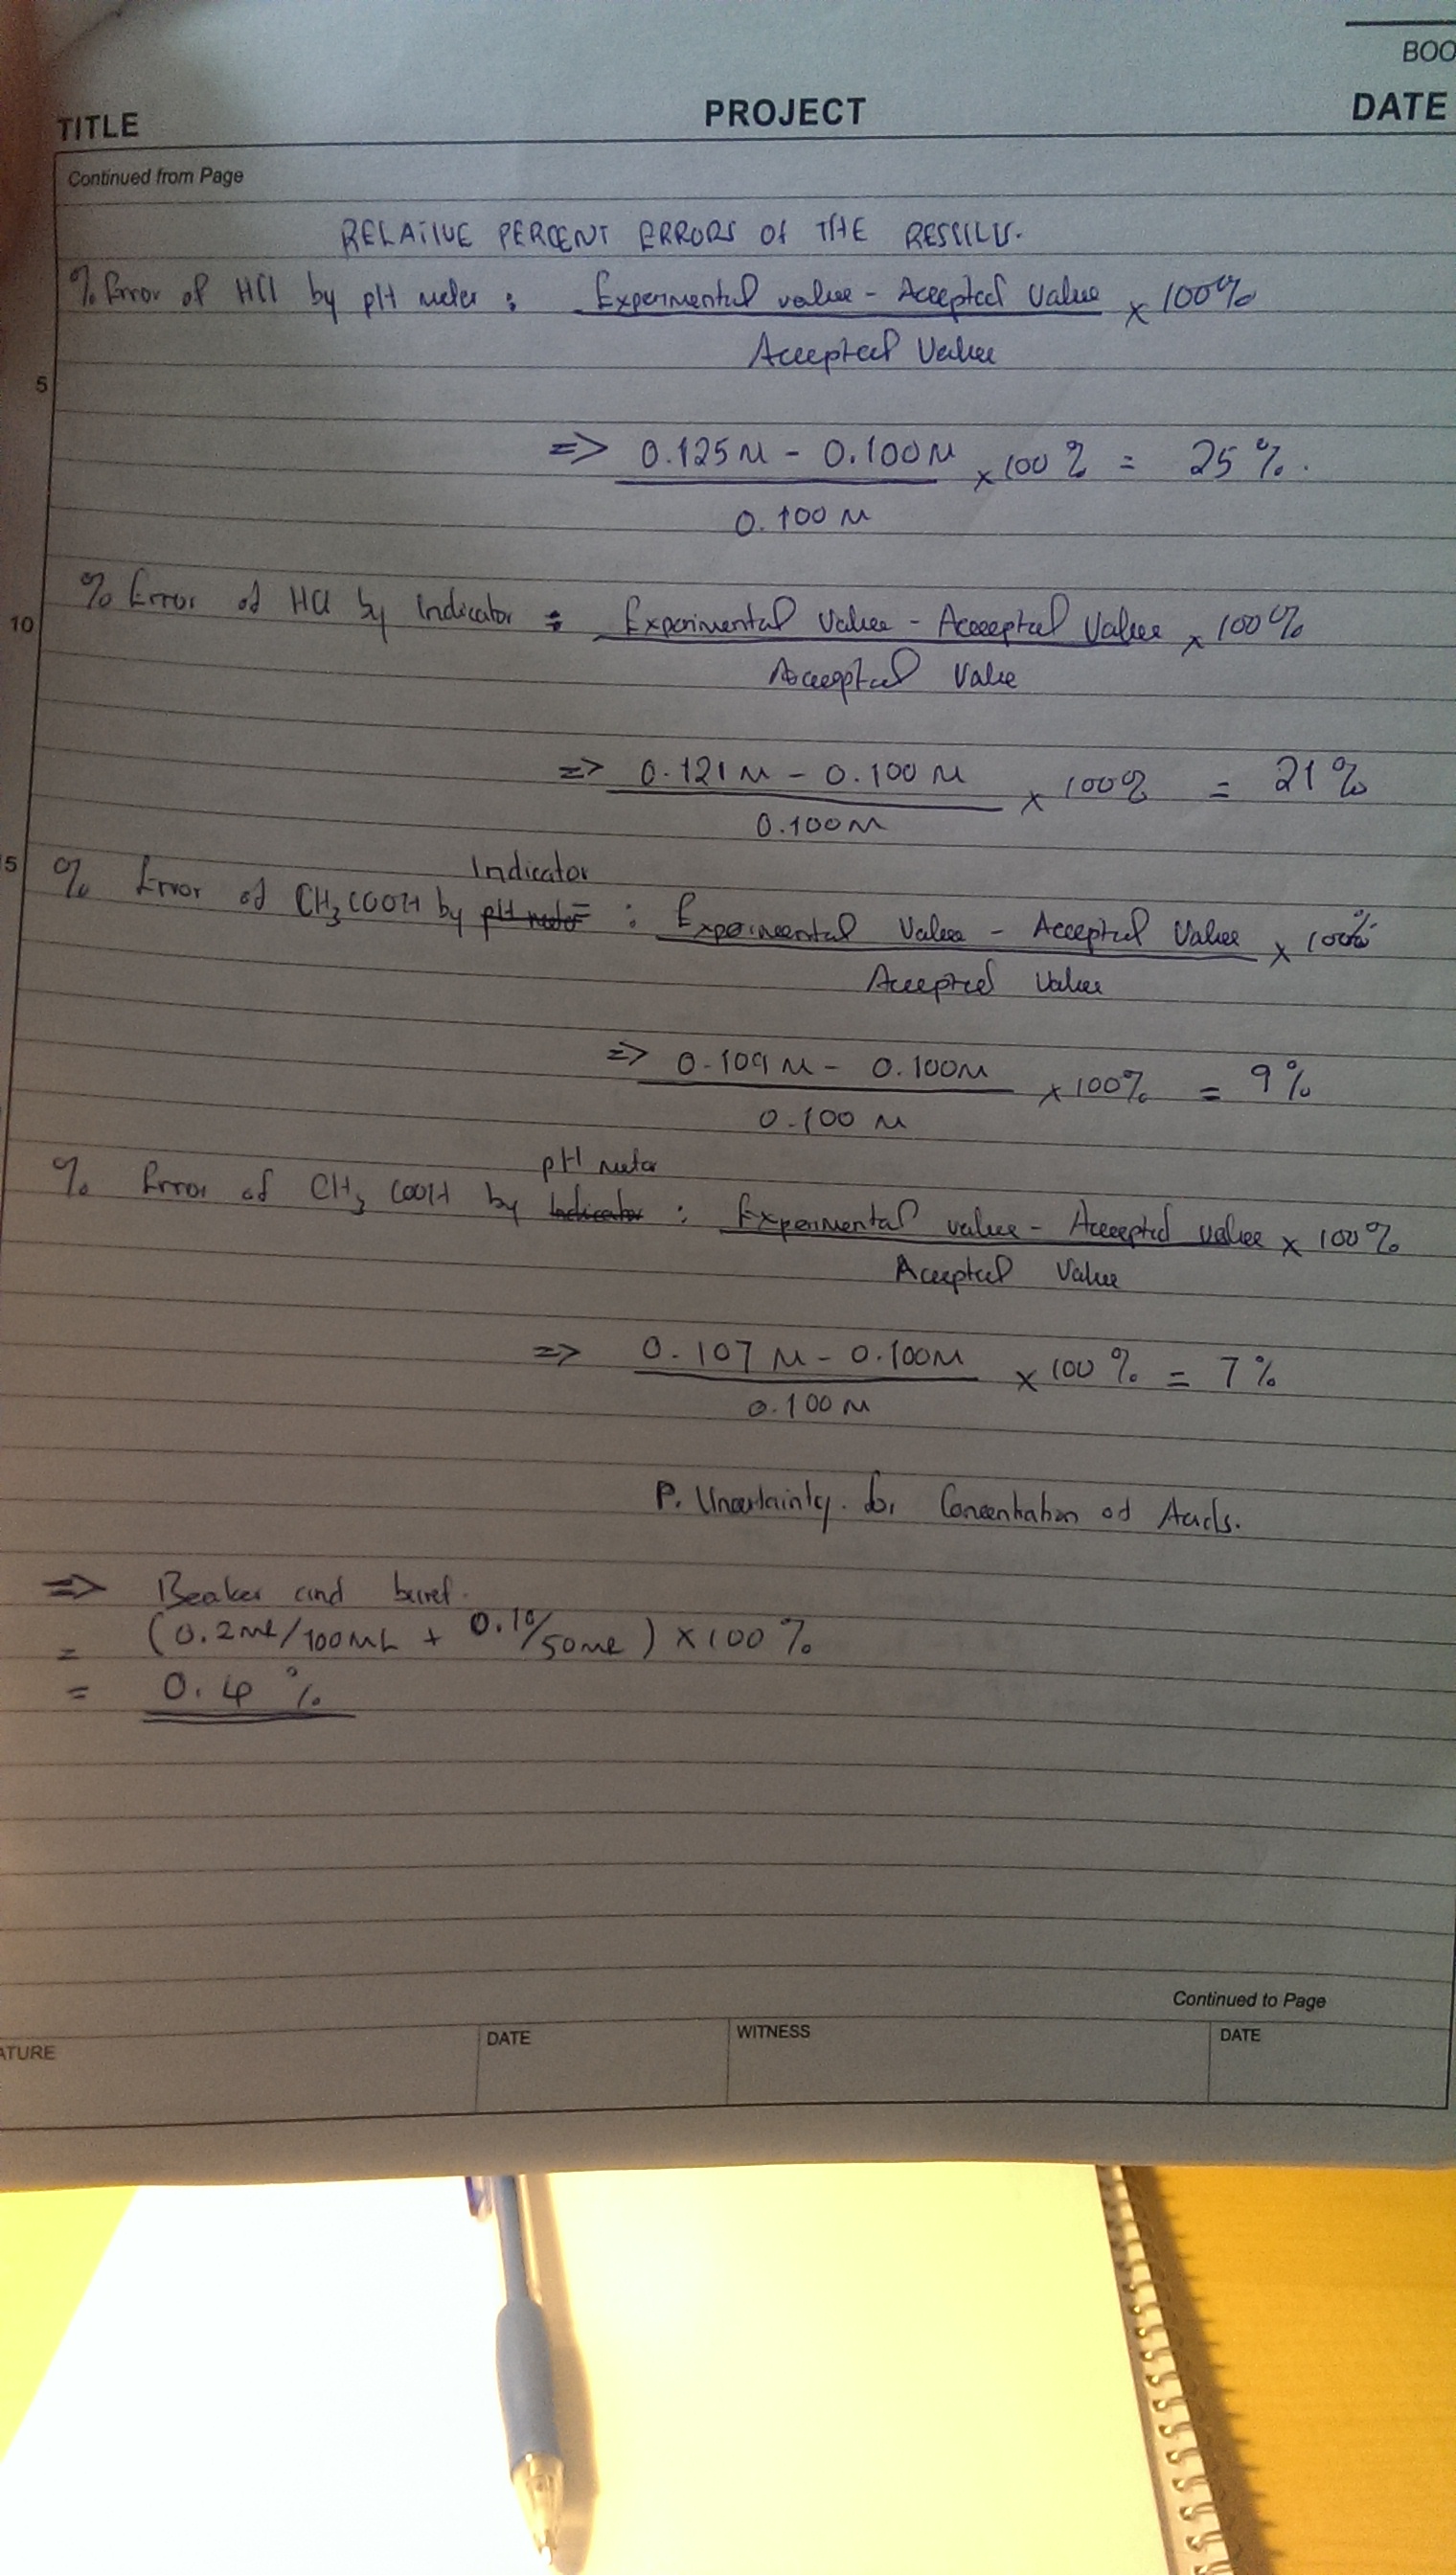 BOO
TITLE PROJECT DATE
Continued from Page
RELATIVE PERCENT ERRORS Of THE RESULTS.
% Error of HCl by pH meter : Experimental value - Accepted Value × 100%
Accepted Value
5
=> 0.125 M - 0.100 M × 100 % = 25 %.
0.100 M
% Error of HCl by Indicator : Experimental Value - Acceepted Value × 100%
10
Acceepted Value
=> 0.121 M - 0.100 M × 100% = 21 %
0.100 M
Indicator
5 % Error of CH3COOH by pH meter : Experimental Value - Accepted Value × 100%
Accepted Value
=> 0.109 M - 0.100M × 100% = 9 %
0.100 M
pH meter
% Error of CH3 COOH by Indicator : Experimental value - Accepted value × 100%
Accepted Value
=> 0.107 M - 0.100M × 100 % = 7 %
0.100 M
P. Uncertainty. for Concentration of Acids.
=> Beaker and buret.
= (0.2mL/100mL + 0.10/50mL) × 100 %
= 0.4 %
Continued to Page
ATURE DATE WITNESS DATE